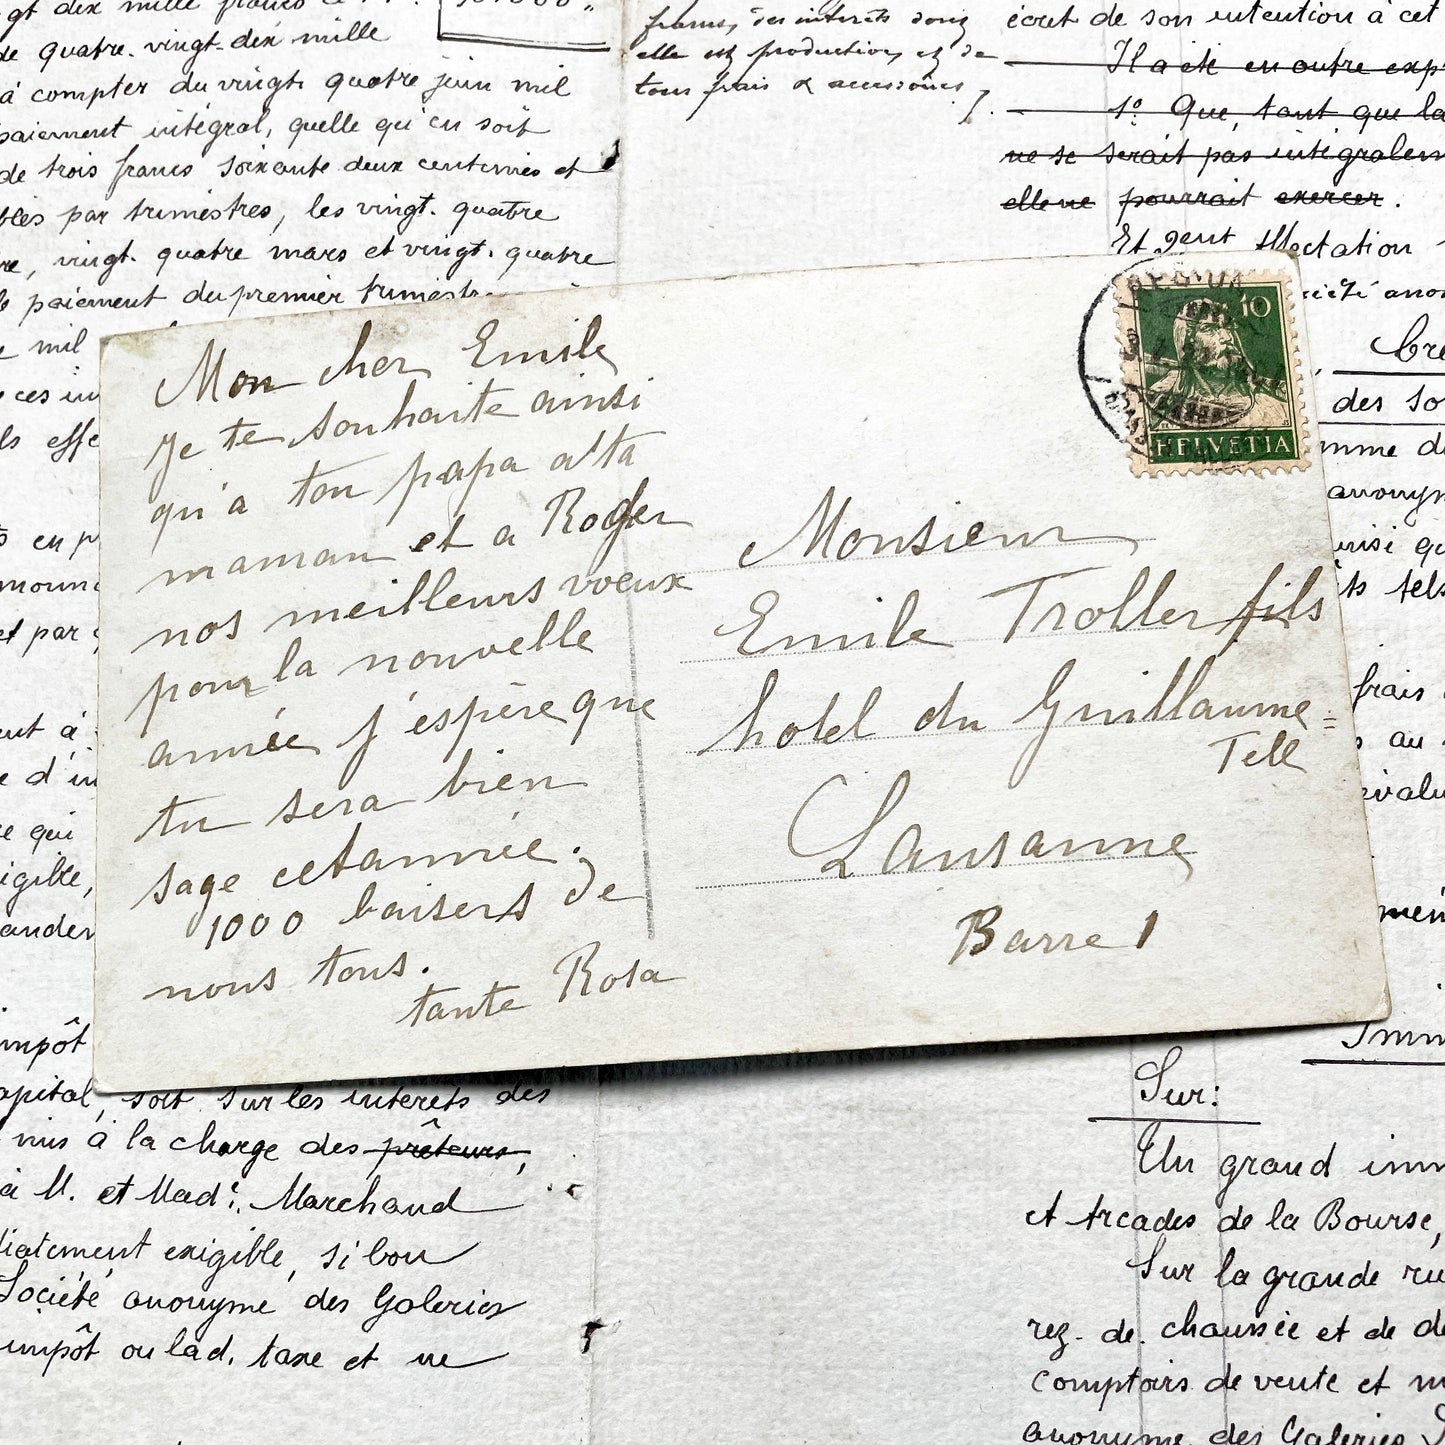 gt dix mille francs
de quatre. vingt-dix mille
à compter du vingt quatre juin mil
paiement intégral, quelle qu'en soit
de trois francs soixante deux centimes et
par trimestres, les vingt. quatre
vingt. quatre mars et vingt. quatre
paiement du premier trimest
mil
ces in
effe
en p
et par
ent à
d'in
qui
igible,
impôt
apital, soit sur les intérêts des
mis à la charge des prêteurs,
à M. et Mad^e. Marchand
diatement exigible, si bon
Société anonyme des Galeries
impôt ou lad. taxe et ne
francs, des intérêts
elle et production, et de
tous frais & accessoires
écret de son intention à cet
Il a été en outre exp
1º. Que, tant que la
ne se serait pas intégralem
elle ne pourrait exercer.
Et
ciété anon
des So
mme d
anonym
frais
au
Sur:
Un grand imm
et Arcades de la Bourse,
Sur la grande ru
rez. de. chaussée et de d
comptoirs de vente et m
anonyme des Galeries S
Mon cher Emile
Je te souhaite ainsi
qu'a ton papa a ta
maman et a Roger
nos meilleurs voeux
pour la nouvelle
année j'espère que
tu sera bien
sage cetannée.
1000 baisers de
nous tous.
tante Rosa
10
HELVETIA
Monsieur
Emile Troller fils
hotel du Guillaume=
Tell
Lausanne
Barre 1